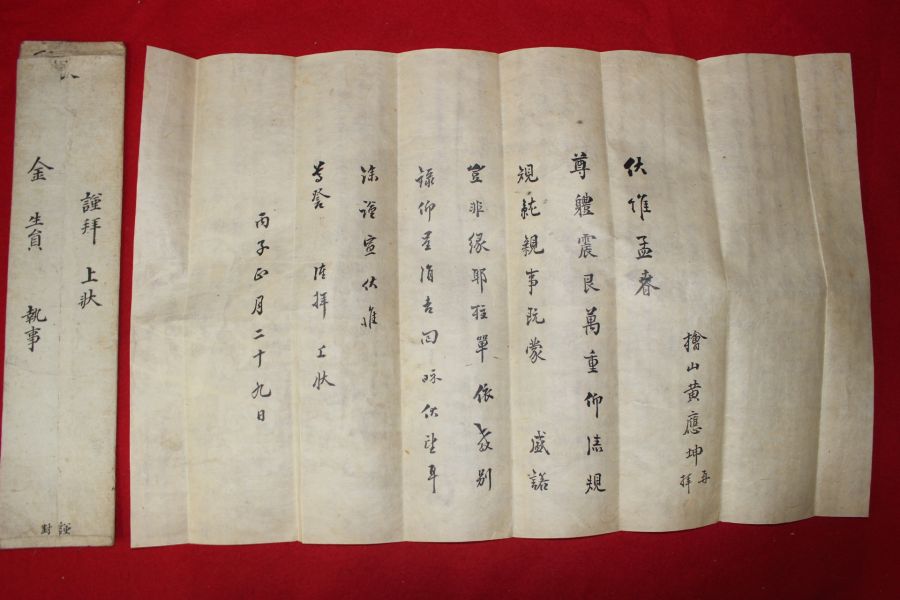 檜山黃應坤再拜
伏惟孟春
尊體震艮萬重仰溸規
規就親事既蒙 盛諾
豈非緣耶柱單依教別
錄仰呈涓吉回眎伏望耳
餘謹宣伏惟
尊詧 謹拜 上狀
丙子正月二十九日
謹拜 上狀
金 生員 執事
謹封